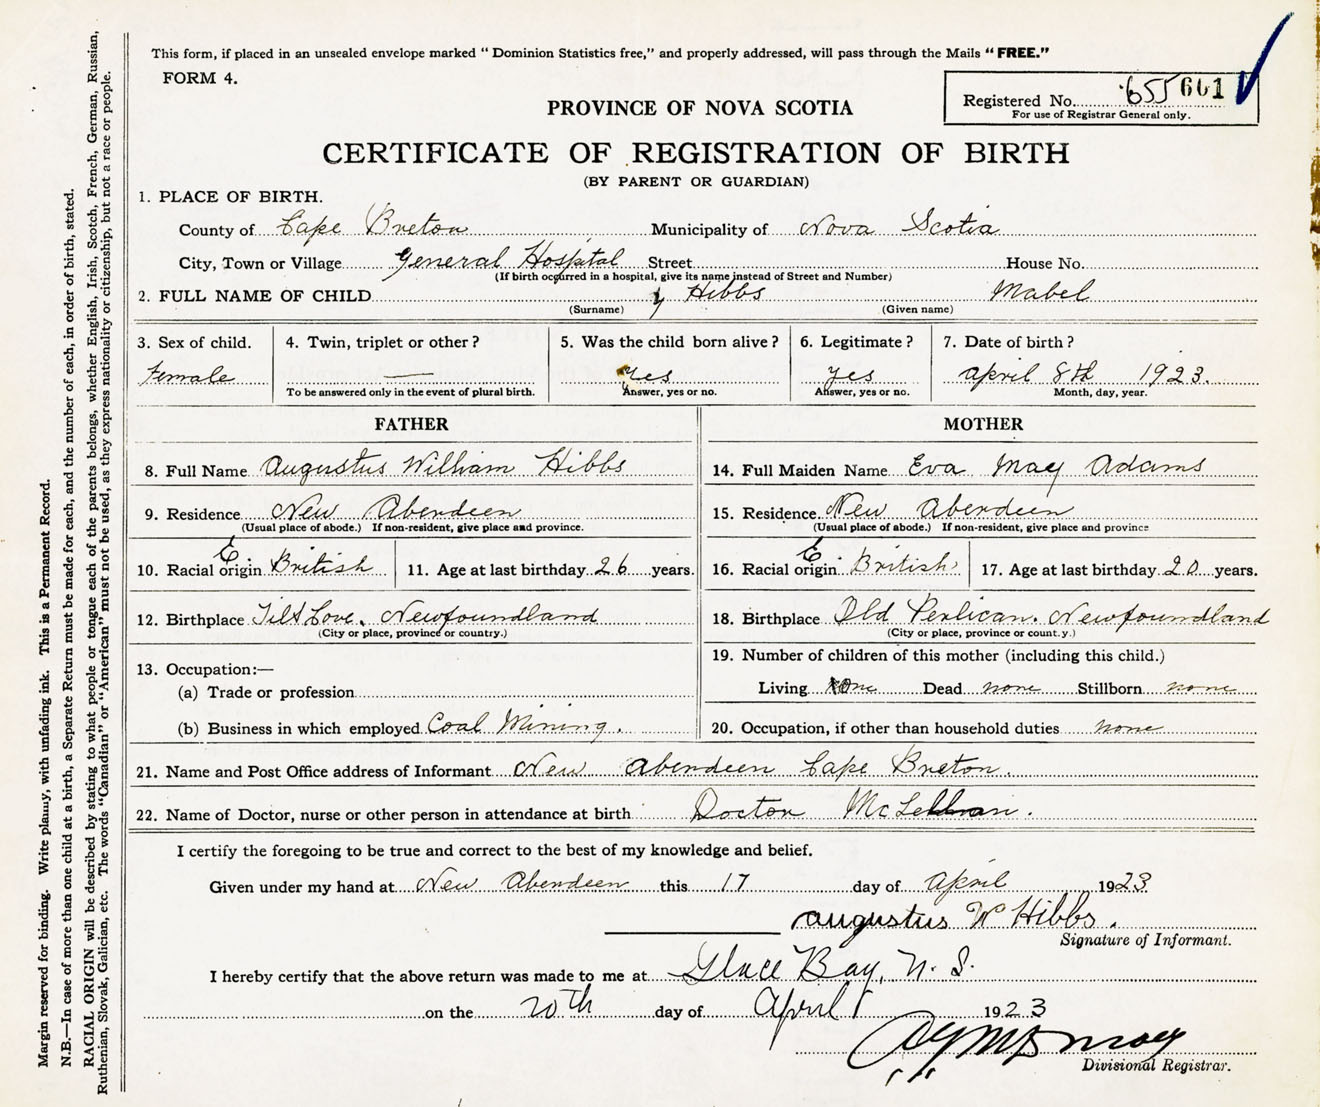 This form, if placed in an unsealed envelope marked “ Dominion Statistics free,” and properly addressed, will pass through the Mails “ FREE.”
FORM 4.
Registered No. 655 601
For use of Registrar General only.
PROVINCE OF NOVA SCOTIA
CERTIFICATE OF REGISTRATION OF BIRTH
(BY PARENT OR GUARDIAN)
1. PLACE OF BIRTH.
County of Cape Breton Municipality of Nova Scotia
City, Town or Village General Hospital Street House No.
(If birth occurred in a hospital, give its name instead of Street and Number)
2. FULL NAME OF CHILD Hibbs Mabel
(Surname) (Given name)
3. Sex of child. 4. Twin, triplet or other ? 5. Was the child born alive ? 6. Legitimate ? 7. Date of birth ?
Female — Yes Yes April 8th 1923.
To be answered only in the event of plural birth. Answer, yes or no. Answer, yes or no. Month, day, year.
FATHER MOTHER
8. Full Name Augustus William Hibbs 14. Full Maiden Name Eva May Adams
9. Residence New Aberdeen 15. Residence. New Aberdeen
(Usual place of abode.) If non-resident, give place and province. (Usual place of abode.) If non-resident, give place and province
10. Racial origin E British 11. Age at last birthday 26 years. 16. Racial origin E British 17. Age at last birthday 20 years.
12. Birthplace Tilt Cove, Newfoundland 18. Birthplace Old Perlican. Newfoundland
(City or place, province or country.) (City or place, province or count.y.)
13. Occupation:— 19. Number of children of this mother (including this child.)
(a) Trade or profession Living One Dead none Stillborn none
(b) Business in which employed Coal Mining. 20. Occupation, if other than household duties none
21. Name and Post Office address of Informant New Aberdeen Cape Breton.
22. Name of Doctor, nurse or other person in attendance at birth Doctor
I certify the foregoing to be true and correct to the best of my knowledge and belief.
Given under my hand at New Aberdeen this 17 day of April 1923
Augustus Wm Hibbs.
Signature of Informant.
I hereby certify that the above return was made to me at Glace Bay, N. S.
on the 20th day of April 1923
Divisional Registrar.
Margin reserved for binding. Write plainly, with unfading ink. This is a Permanent Record.
N.B.—In case of more than one child at a birth, a Separate Return must be made for each, and the number of each, in order of birth, stated.
RACIAL ORIGIN will be described by stating to what people or tongue each of the parents belongs, whether English, Irish, Scotch, French, German, Russian,
Ruthenian, Slovak, Galician, etc. The words “Canadian” or “American” must not be used, as they express nationality or citizenship, but not a race or people.